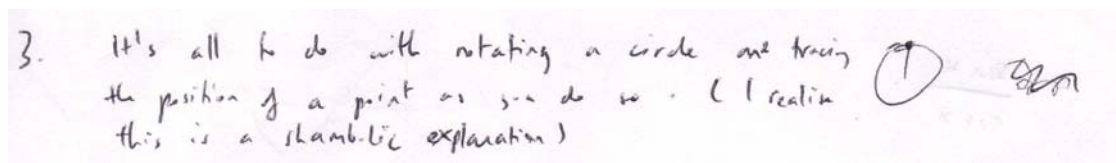 3. It's all to do with rotating a circle and tracing
the position of a point as you do so. (I realise
this is a shambolic explanation)